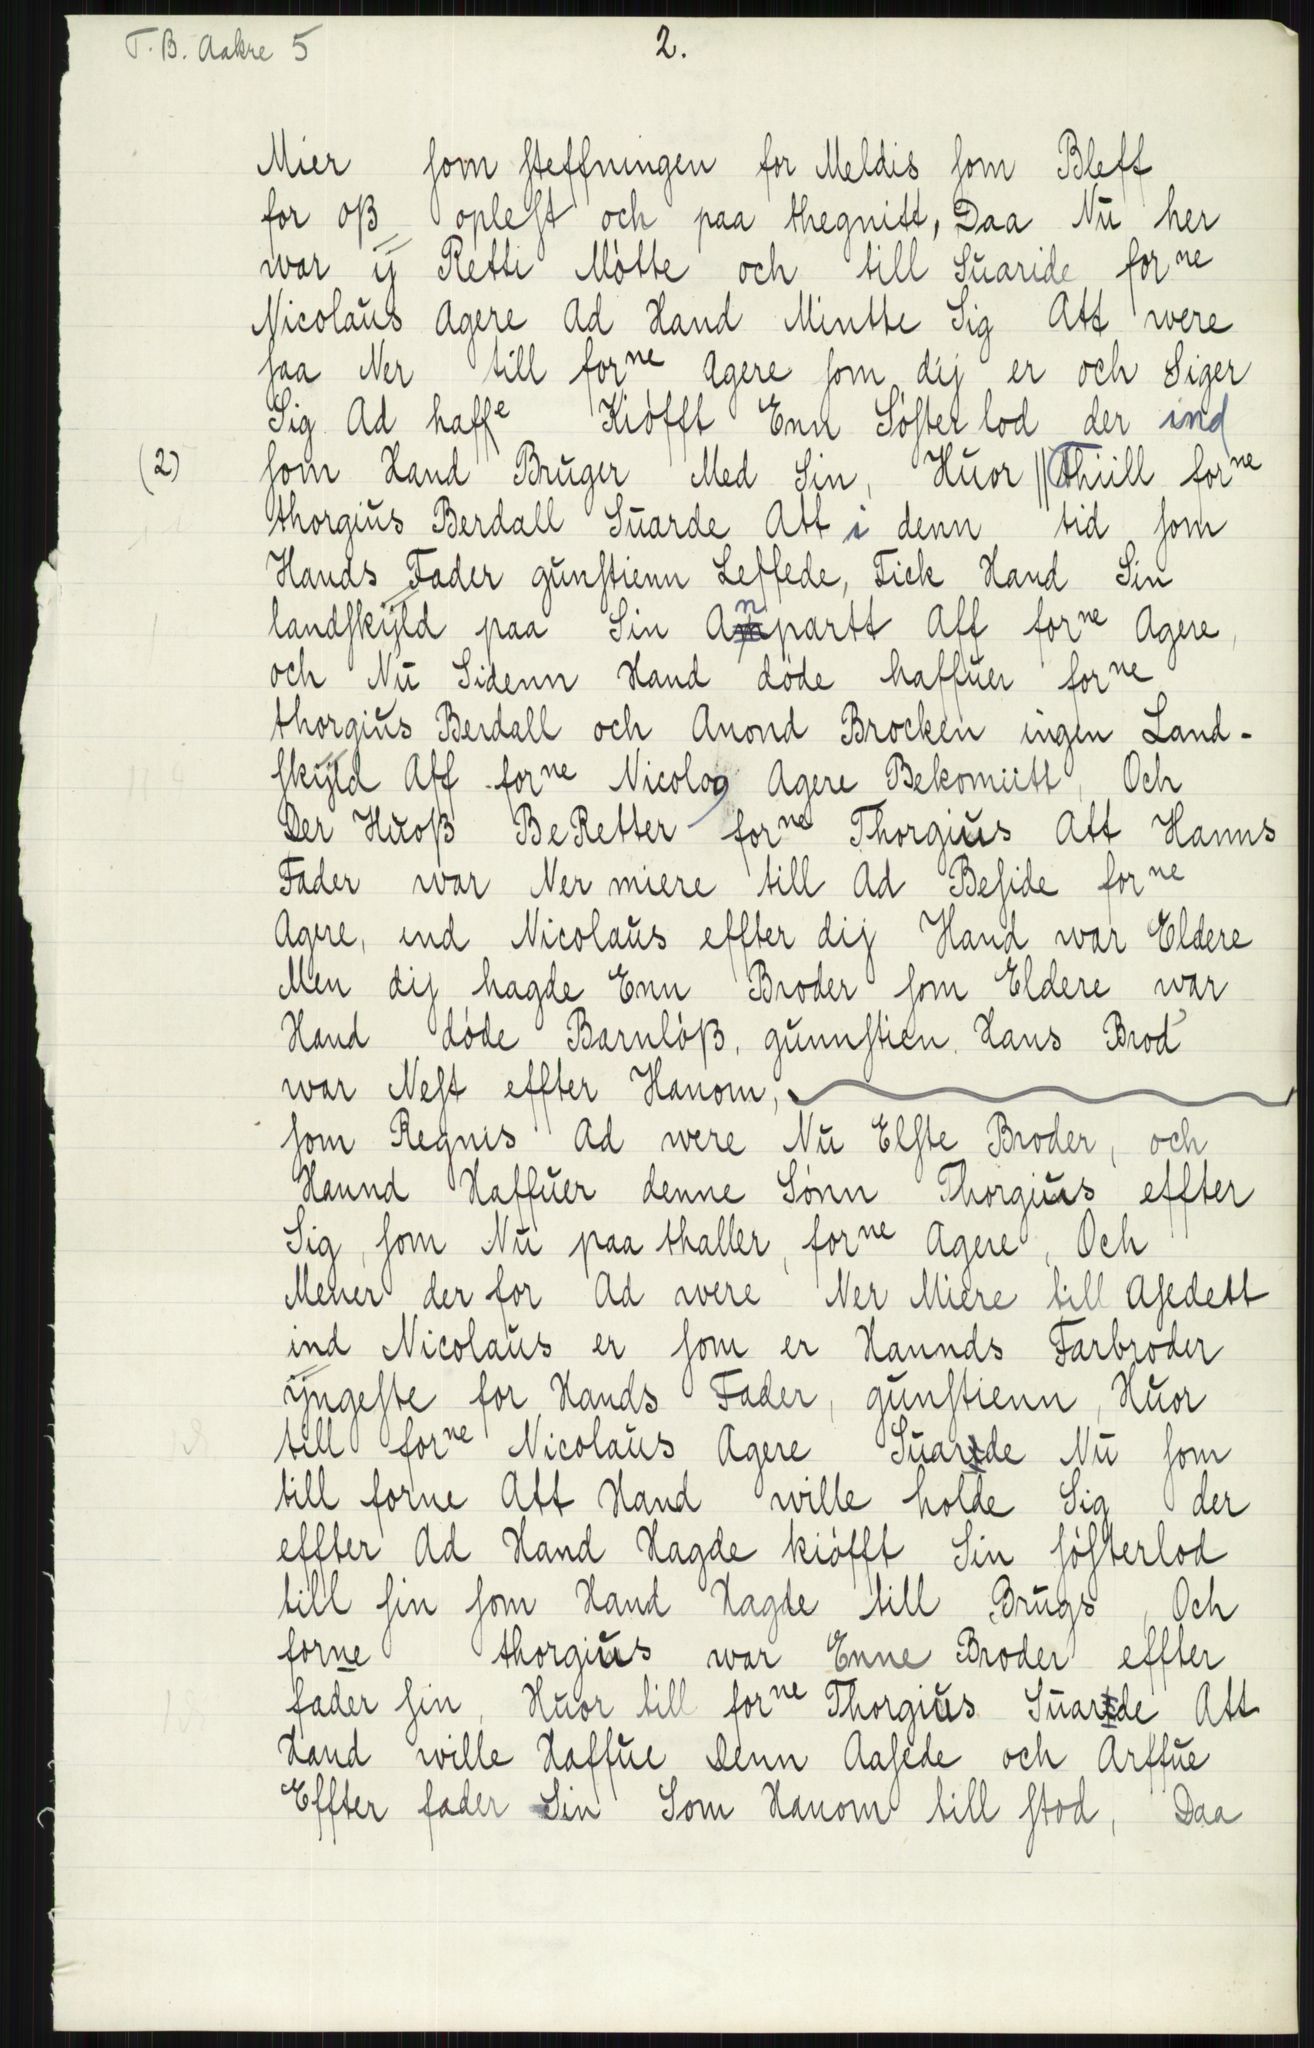 T. B. Aakre 5
2.
Mier som steffningen for Meldis som Bleff
for oß oplest och paa thegnitt, Daa Nu her
war ij Rette Mötte och till Suaride forne
Nicolaus Agere Ad Hand Mintte Sig Att were
saa Ner till forne Agere som dij er och Siger
Sig Ad haffe Kiöfft Enn Söster lod der ind
(2) som Hand Bruger Med Sin, Huor || Thiill forne
thorgius Berdall Suarde Att i denn tid som
Hands Fader gunstienn Leffede, Fick Hand Sin
landskÿld paa Sin Anpartt Aff forne Agere,
och Nu Sidenn Hand döde haffuer forne
thorgius Berdall och Anond Brocken ingen Land-
skÿld Aff forne Nicolao Agere Bekomiitt, Och
Der Huoß BeRetter forne Thorgius Att Hanns
Fader war Ner miere till Ad Beside forne
Agere, end Nicolaus effter dij Hand war Eldere
Men dij hagde Enn Broder som Eldere war
Hand döde Barnlöß, gunnstien Hans Brod
war Nest effter Hanom,
som Regnis Ad were Nu Elste Broder, och
Haund Haffuer denne Sönn Thorgius effter
Sig, som Nu paa thaller, forne Agere, Och
Mener der for Ad were Ner Miere till Asedett
ind Nicolaus er som er Haunds Farbroder
ÿngeste for Hands Fader, gunstienn, Huor
till forne Nicolaus Agere Suarde Nu som
till forne Att Hand wille holde Sig der
effter Ad Hand Hagde kiöfft Sin sösterlod
till sin som Hand Hagde till Brugs, Och
forne thorgius war Enne Broder effter
fader sin, Huor till forne Thorgius Suarde Att
Hand wille Haffue Denn Aasede och Arffue
Effter fader Sin Som Hanom till stod, Daa